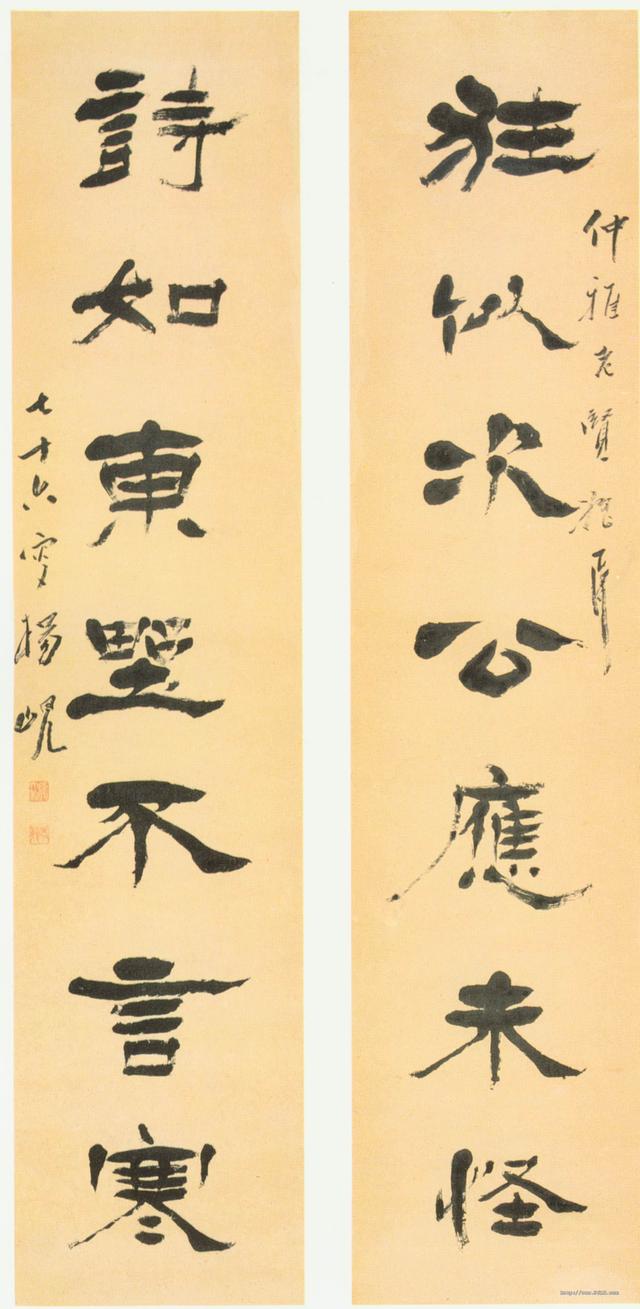 仲雅老賢
狂似次公應未怪
詩如東野不言寒
七十六叟楊峴